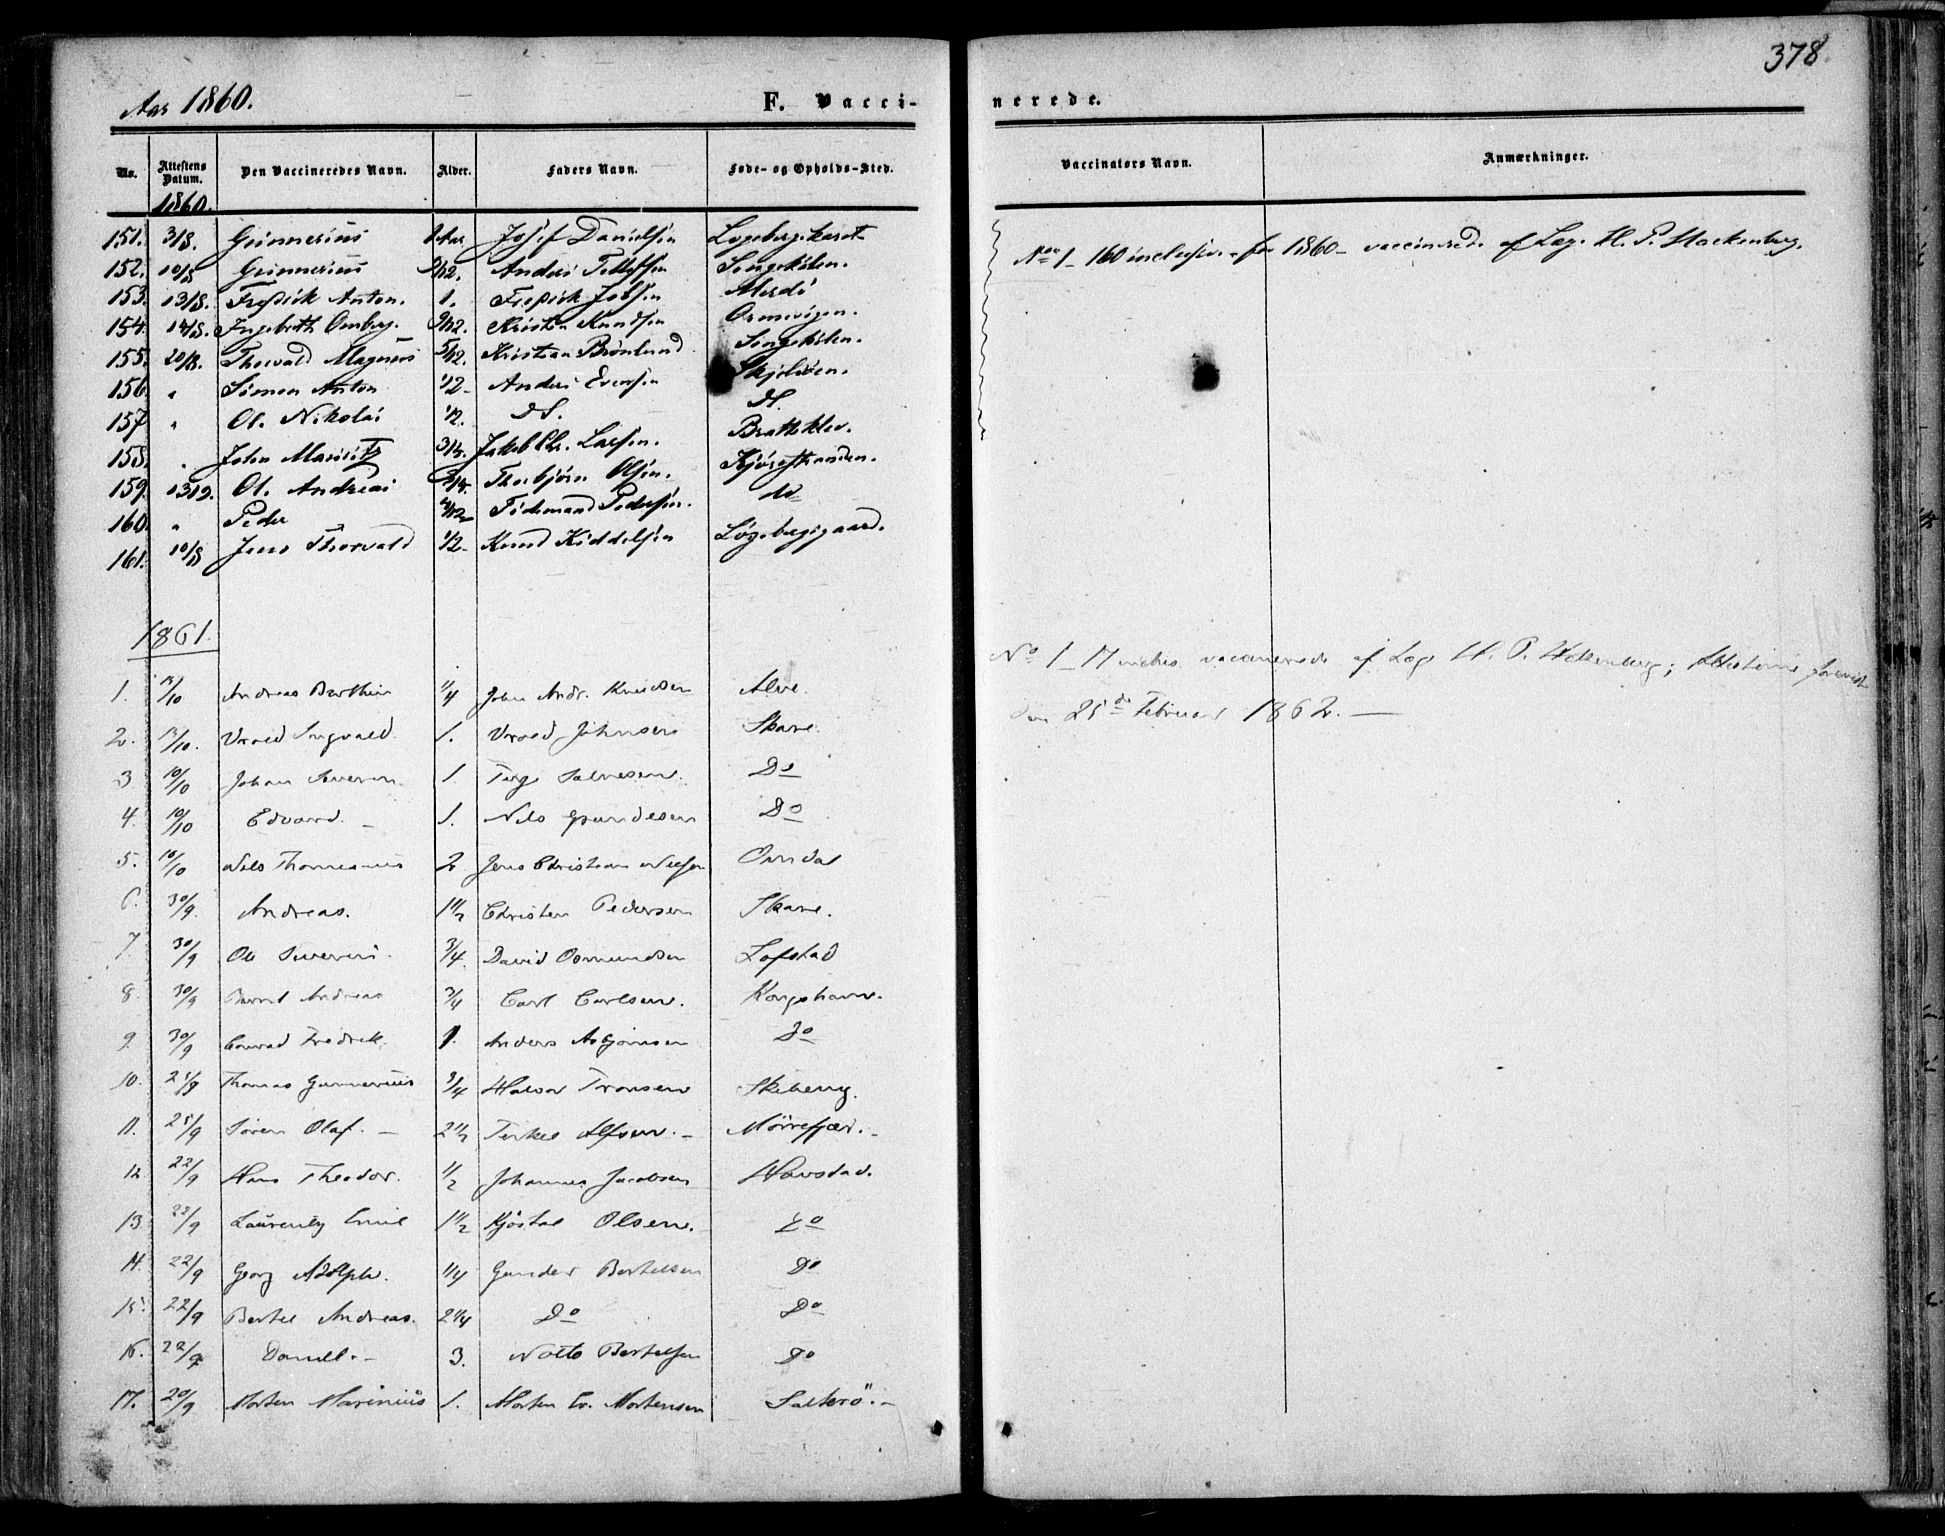 378
Aar 1860. F. Vacci-nerede.
No. Attestens Datum. Den Vaccineredes Navn. Alder. Faders Navn. Føde- og Opholds-Sted. Vaccinators Navn. Anmærkninger.
1860.
151. 3/8. Gunnerius 1 Aar Josef Danielsen
152. 10/8 Gunnerius Anders Tellefsen Songekilen.
153. 13/8. Fredrik Anton. 1. Fredrik Jobsen Merdö
154. 14/8. Ingebreth Omberg. 9/12. Kristen Knudsen Ormevigen.
155. 20/8. Thorvald Magnus 5/12. Kristian Brönlund Songekilen.
156. " Simon Anton 1/2 Anders Evensen Skjelöen.
157 " Ol. Nikolai 1/2. dS. dS.
158. " John Mauritz 3/4. Jakob Chr. Larsen. Bratteklev.
159. 13/9. Ol. Andreas Thorbjörn Olsen. Kjörestranden.
160. " Peder Tidemand Pedersen. do
161. 10/8 Jens Thorvald 1/2 Knud Kiddelsen Løgebergsgaard.
No 1 - 160 inclusive for 1860 vaccinerede af Læge H. P. Hackenberg.
1861.
1. 12/10 Andreas Berthin 1/4 John Andr. Knudsen Alve.
2. 12/10. Vrold Ingvald. 1. Vrold Johnsen Skare.
3 10/10 Johan Severin. 1. Terje Salvesen. Do
4. 10/10 Edvard. 1. Nils Gundesen Do
5. 10/10 Nils Thomesius 2 Jens Christian Nielsen Omdal
6. 30/9. Andreas. 1 1/2 Christen Pedersen Skare.
7 30/9 Ole Severin. 3/4. David Osmundsen Lofstad
8. 30/9 Bernt Andreas 3/4 Carl Carlsen. Kongshavn.
9. 30/9 Conrad Fredrik. 1. Anders Asbjörnsen Do
10. 25/9 Thomas Gunnerius 3/4 Halvor Tronsen Skiberg.
11. 25/9 Sören Olaf. 2 1/2 Terkel Alfsen. Mörrefjær.
12 22/9 Hans Theodor. 1/2 Johannes Jacobsen Havstad.
13 22/9 Laurentz Emil 1 1/2 Kjöstol Olsen. Do
14. 22/9 Georg Adolph. 1/4 Gunder Bertelsen Do
15. 22/9 Bertel Andreas. 2 1/4 Do Do
16. 22/9 Daniel. 3. Notto Bertelsen Do
17. 20/9 Morten Marinius 1. Morten Ev. Mortensen Salterö.
No 1 - 17 incles. vaccinerede af Læge H. P. Hackenberg; Attesterne forevist
den 25de Februar 1862.